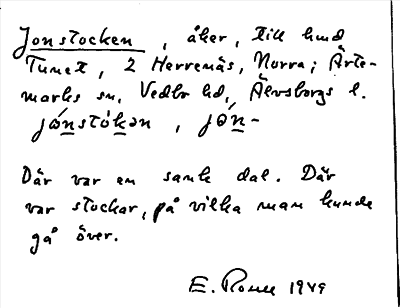 Jonstocken, åker, till hmd
Tunet, 2 Herrenäs, Norra; Ärte-
marks sn, Vedbo hd, Älvsborgs l.
jónstòkən, jón-
Där var en sank dal. Där
var stockar, på vilka man kunde
gå över.
E. 1949